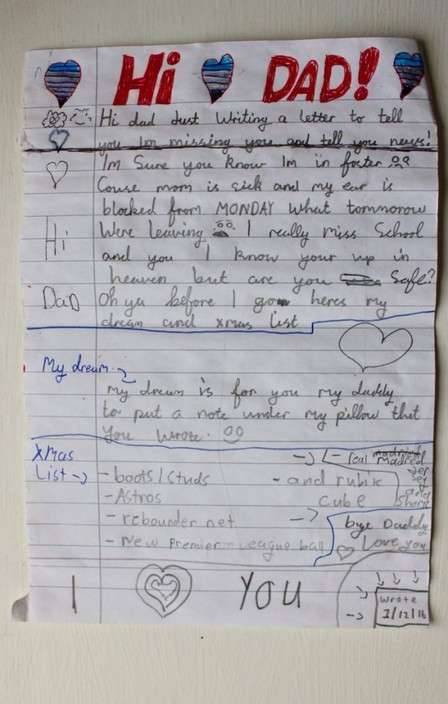 Hi DAD!
Hi dad Just Writing a letter to tell
you Im missing you and tell you news!
Im Sure you know Im in foster
Couse mom is sick and my ear is
blocked from MONDAY What tommorow
Hi
Were leaving I really miss School
and you I know your up in
heaven but are you Safe?
Dad
Oh ya before I go heres my
dream and xmas list
My dream
my dream is for you my daddy
to put a note under my pillow that
you wrote.
Xmas
List
- boots/studs
- Astros
- rebounder net
- New Premier League ball
- real madrid
- and rubix
cube
bye Daddy
Love you
I YOU
Wrote
1/12/16